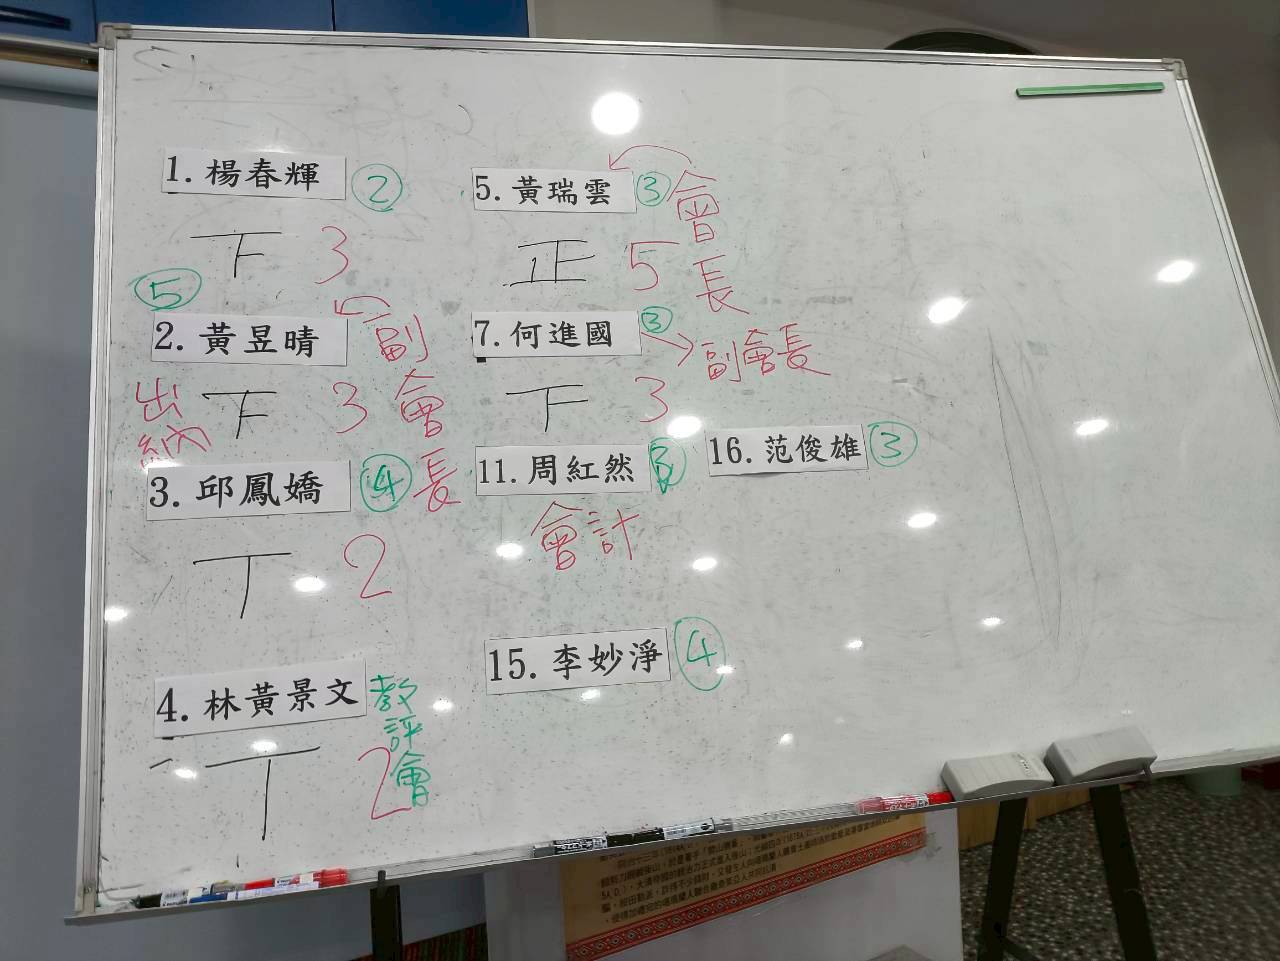 1. 楊春輝 ②
下 3
⑤
2. 黃昱晴
副會長
出納
下 3
3. 邱鳳嬌 ④
丅 2
4. 林黃景文
教評會
丅 2
5. 黃瑞雲 ③
會長
正 5
7. 何進國 ③
副會長
下 3
11. 周紅然
會計
15. 李妙淨 ④
16. 范俊雄 ③